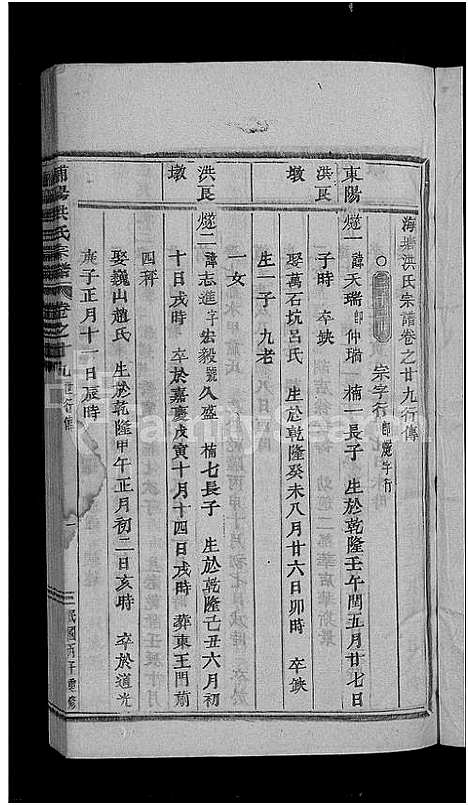 海塘洪氏宗譜卷之廿九行傳
宗字行 即燧字行
東陽 洪良墩
燧一 諱天瑞 即仲瑞 楠一長子 生於乾隆壬午閏五月廿七日
子時 卒缺
娶萬石坑呂氏 生於乾隆癸未八月廿六日卯時 卒缺
生一子 九老
一女
洪良墩
燧二 諱志進 字宏毅 號久盛 楠七長子 生於乾隆己丑六月初
十日戌時 卒於嘉慶戊寅十月十四日戌時 葬東王門前
四秤
娶巍山趙氏 生於乾隆甲午正月初二日亥時 卒於道光
庚子正月十一日辰時
浦陽洪氏宗譜 卷之廿九 行傳 一 民國丙子重修